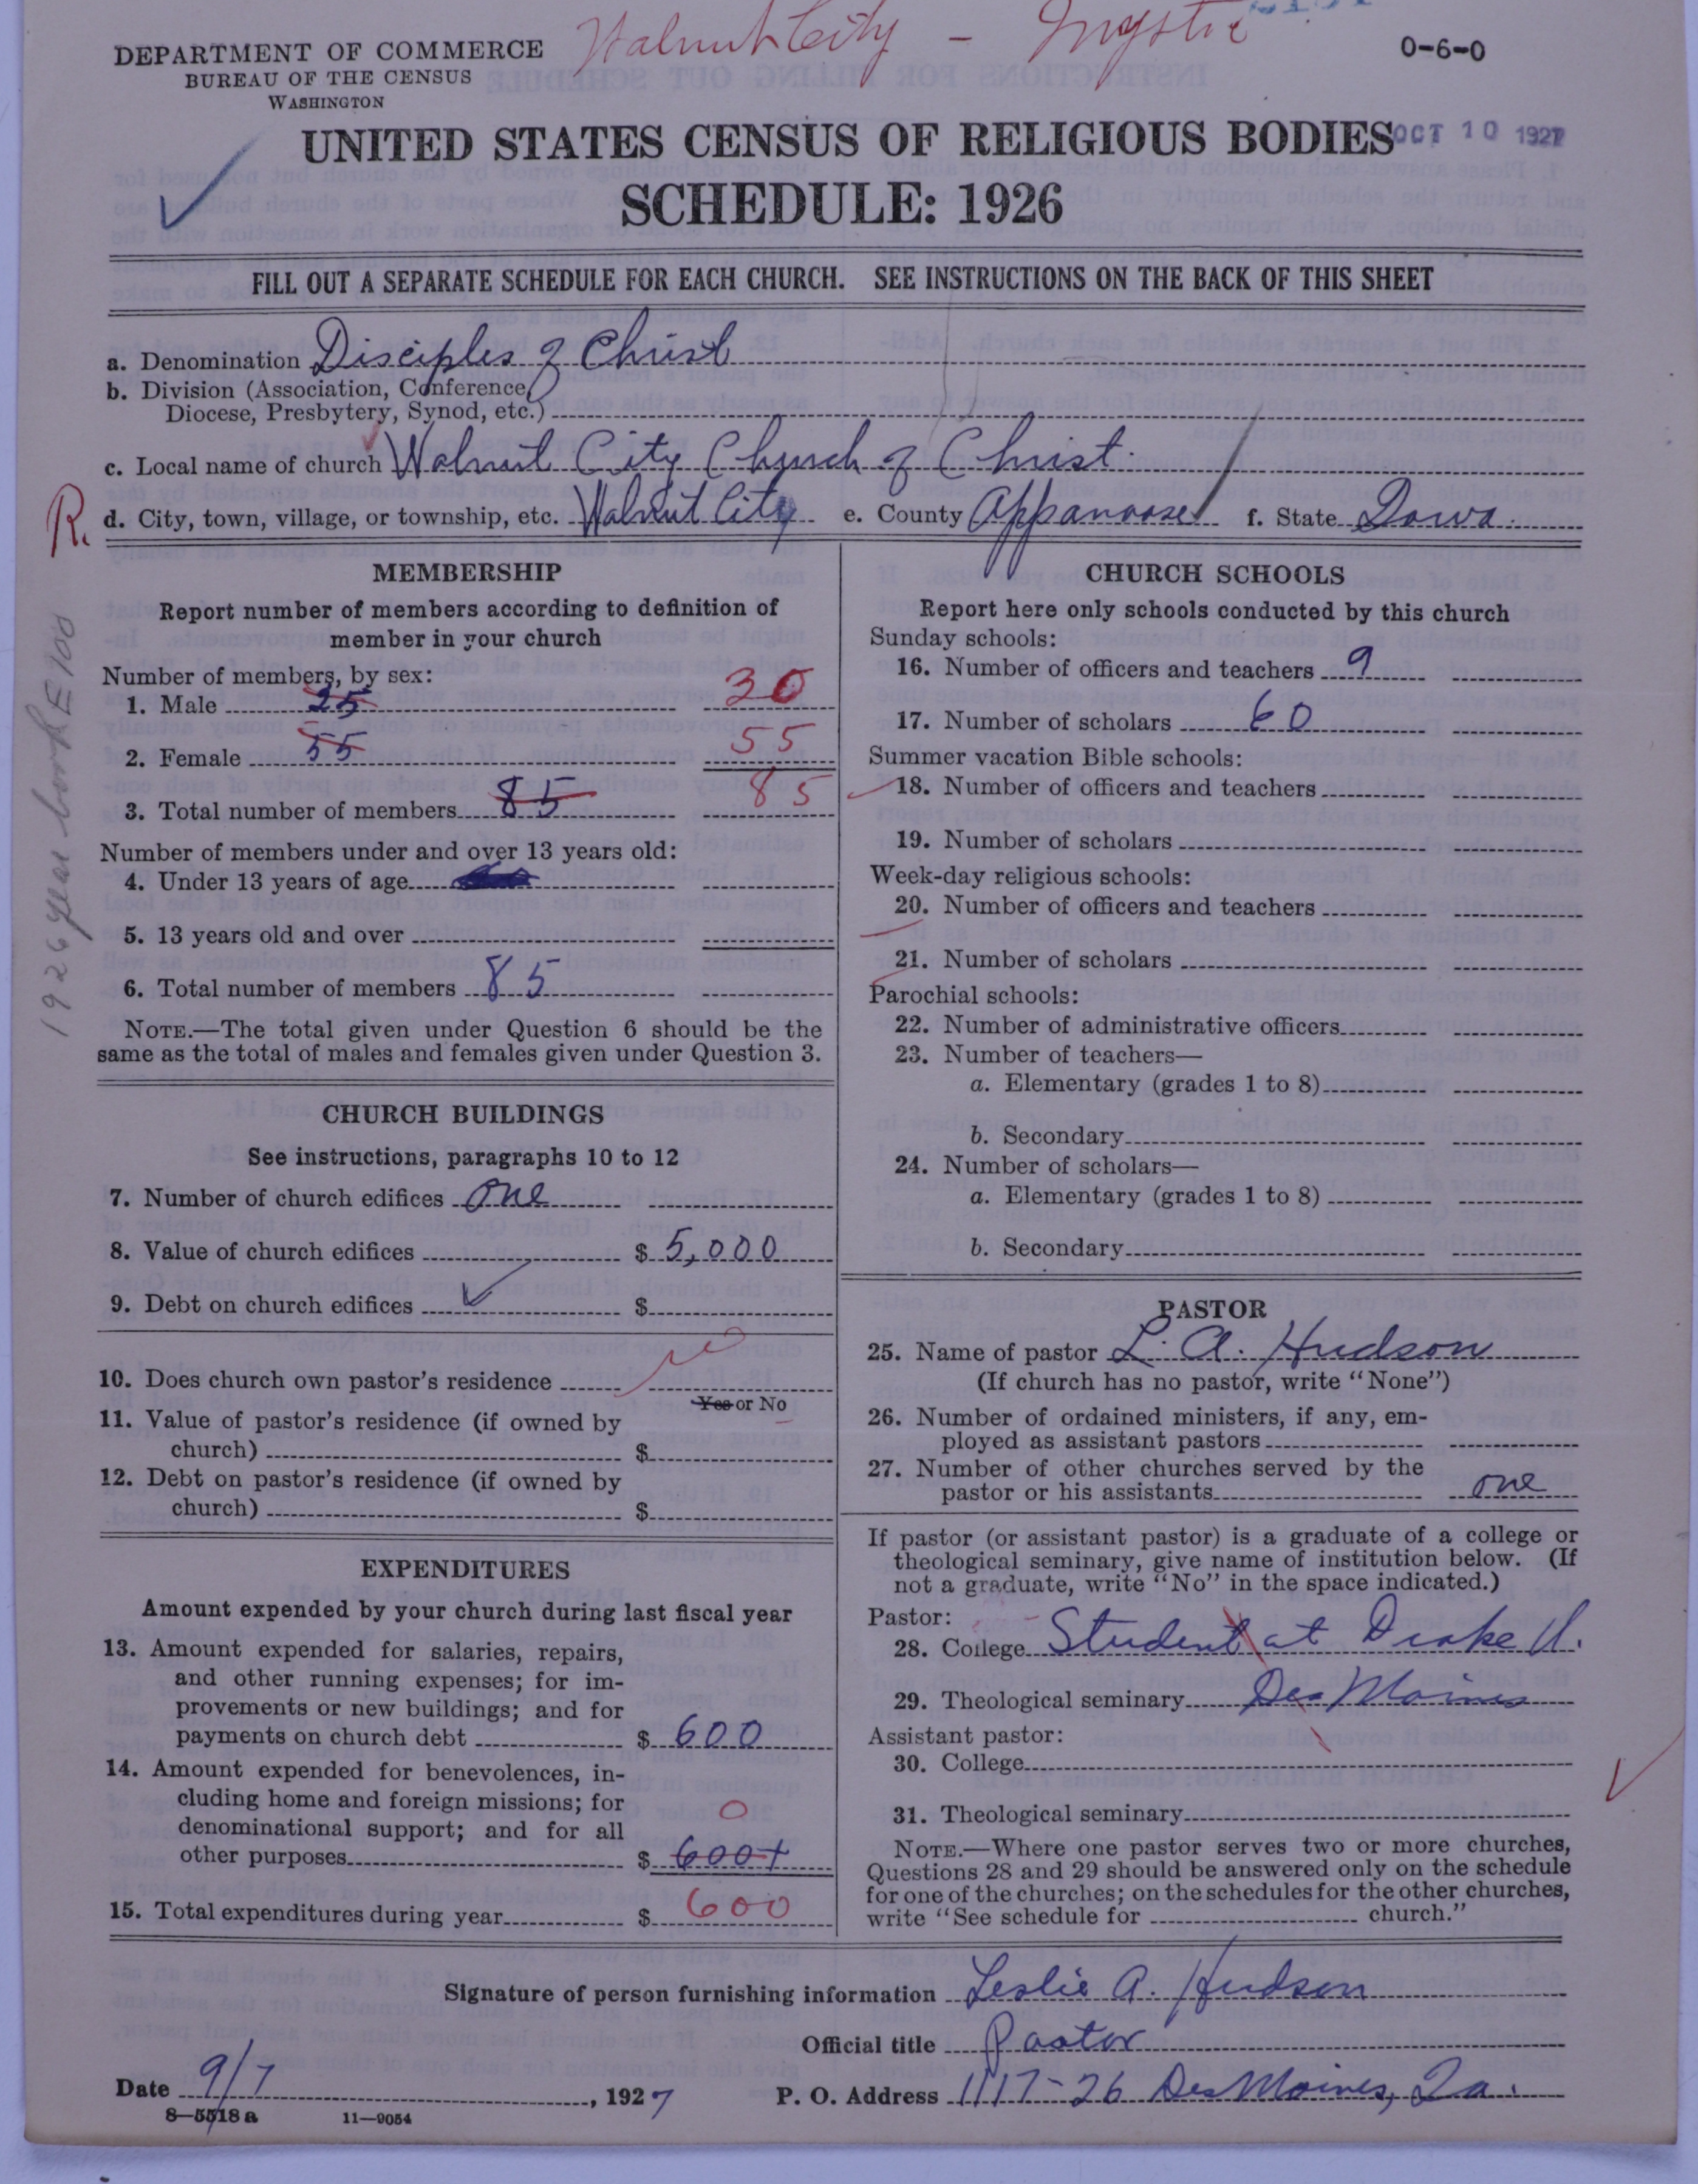 Walnut City - Mystic
DEPARTMENT OF COMMERCE
BUREAU OF THE CENSUS
WASHINGTON
0-6-0
UNITED STATES CENSUS OF RELIGIOUS BODIES
OCT 10 1927
SCHEDULE: 1926
FILL OUT A SEPARATE SCHEDULE FOR EACH CHURCH. SEE INSTRUCTIONS ON THE BACK OF THIS SHEET
a. Denomination Disciples of Christ
b. Division (Association, Conference,
Diocese, Presbytery, Synod, etc.)
c. Local name of church Walnut City Church of Christ
R.
d. City, town, village, or township, etc. Walnut City e. County Appanoose f. State Iowa
1926 year book E 700
MEMBERSHIP
Report number of members according to definition of
member in your church
Number of members, by sex:
1. Male 25 30
2. Female 55 55
3. Total number of members 85 85
Number of members under and over 13 years old:
4. Under 13 years of age
5. 13 years old and over
6. Total number of members 85
NOTE.—The total given under Question 6 should be the
same as the total of males and females given under Question 3.
CHURCH BUILDINGS
See instructions, paragraphs 10 to 12
7. Number of church edifices one
8. Value of church edifices $ 5,000
9. Debt on church edifices $
10. Does church own pastor's residence no
Yes or No
11. Value of pastor's residence (if owned by
church) $
12. Debt on pastor's residence (if owned by
church) $
EXPENDITURES
Amount expended by your church during last fiscal year
13. Amount expended for salaries, repairs,
and other running expenses; for im-
provements or new buildings; and for
payments on church debt $ 600
14. Amount expended for benevolences, in-
cluding home and foreign missions; for
denominational support; and for all 0
other purposes $ 600+
15. Total expenditures during year $ 600
CHURCH SCHOOLS
Report here only schools conducted by this church
Sunday schools:
16. Number of officers and teachers 9
17. Number of scholars 60
Summer vacation Bible schools:
18. Number of officers and teachers
19. Number of scholars
Week-day religious schools:
20. Number of officers and teachers
21. Number of scholars
Parochial schools:
22. Number of administrative officers
23. Number of teachers—
a. Elementary (grades 1 to 8)
b. Secondary
24. Number of scholars—
a. Elementary (grades 1 to 8)
b. Secondary
PASTOR
25. Name of pastor L. A. Hudson
(If church has no pastor, write "None")
26. Number of ordained ministers, if any, em-
ployed as assistant pastors
27. Number of other churches served by the
pastor or his assistants one
If pastor (or assistant pastor) is a graduate of a college or
theological seminary, give name of institution below. (If
not a graduate, write "No" in the space indicated.)
Pastor:
28. College Student at Drake U.
29. Theological seminary Des Moines
Assistant pastor:
30. College
31. Theological seminary
NOTE.—Where one pastor serves two or more churches,
Questions 28 and 29 should be answered only on the schedule
for one of the churches; on the schedules for the other churches,
write "See schedule for church."
Signature of person furnishing information Leslie A. Hudson
Official title Pastor
Date 9/7, 1927 P. O. Address 1117-26 Des Moines, Ia.
8—5518 a 11—9054